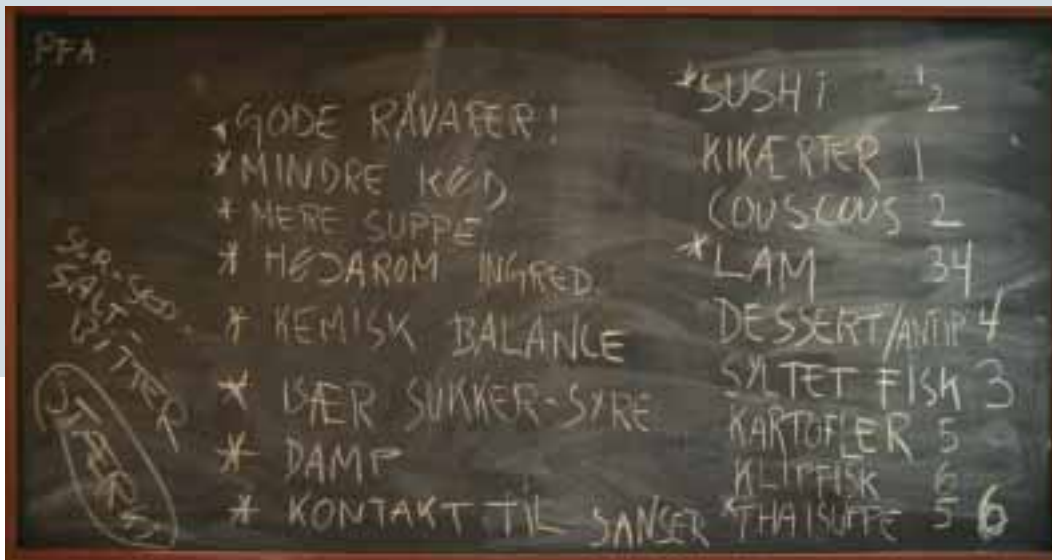 PFA
GODE RÅVARER!
* MINDRE KØD
* MERE SUPPE
* HØJAROM INGRED.
* KEMISK BALANCE
* ISÆR SUKKER-SYRE
* DAMP
* KONTAKT TIL SANSER
SUR-SØD
SALT-
BITTER
STÆRKT
*SUSHI 2
KIKÆRTER 1
COUSCOUS 2
*LAM 34
DESSERT/ANTIP 4
SYLTET FISK 3
KARTOFLER 5
KLIPFISK 6
*THAISUPPE 5 6